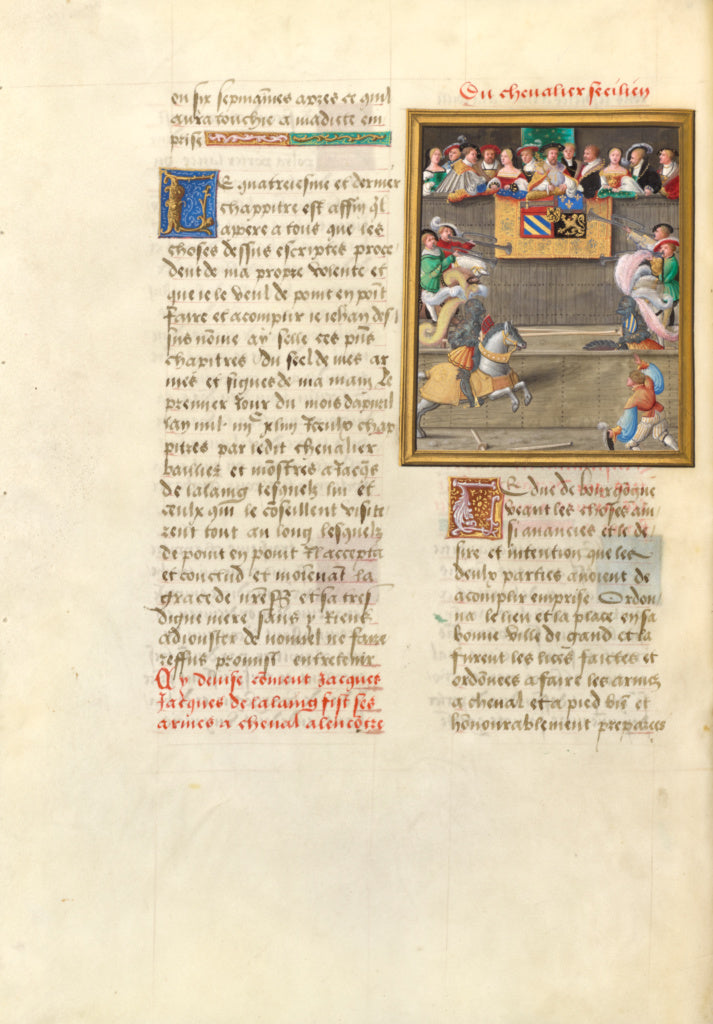 en six sepmaines apres ce quil
aura touchie a madicte em
prise
Le quatreiesme et dernier
chappitre est affin ql
apere a tous que les
choses dessus escriptes proce
dent de ma propre volente et
que ie le veul de point en point
faire et acomplir ie iehan des
sus nome ay selle ces pns
chapitres du seel de mes ar
mes et signes de ma main Le
premier Jour du mois dapuril
lan mil iiijc xliiij Jceulx chap
pitres par ledit chevalier
bailiez et monstres a Jaques
de lalaing lesquelz lui et
ceulx qui le conseillent visite
rent tout au long lesquelz
de point en point Jl accepta
et conclud et moienant la
grace de nre sr et sa tres
digne mere sans y riens
adiouster de nouvel ne faire
reffus promist entretenir
Cy devise coment Jacques
Jacques de lalaing fist ses
armes a cheval alencotre
Du chevalier secilien
Le duc de bourgoigne
veant les choses ain
si avancies et le de
sire et intention que les
deulx parties avoient de
acomplir emprise Ordon
na le lieu et la place en sa
bonne ville de gand et la
furent les lices faictes et
ordonees a faire les armes
a cheval et a pied bie et
honnourablement preparees